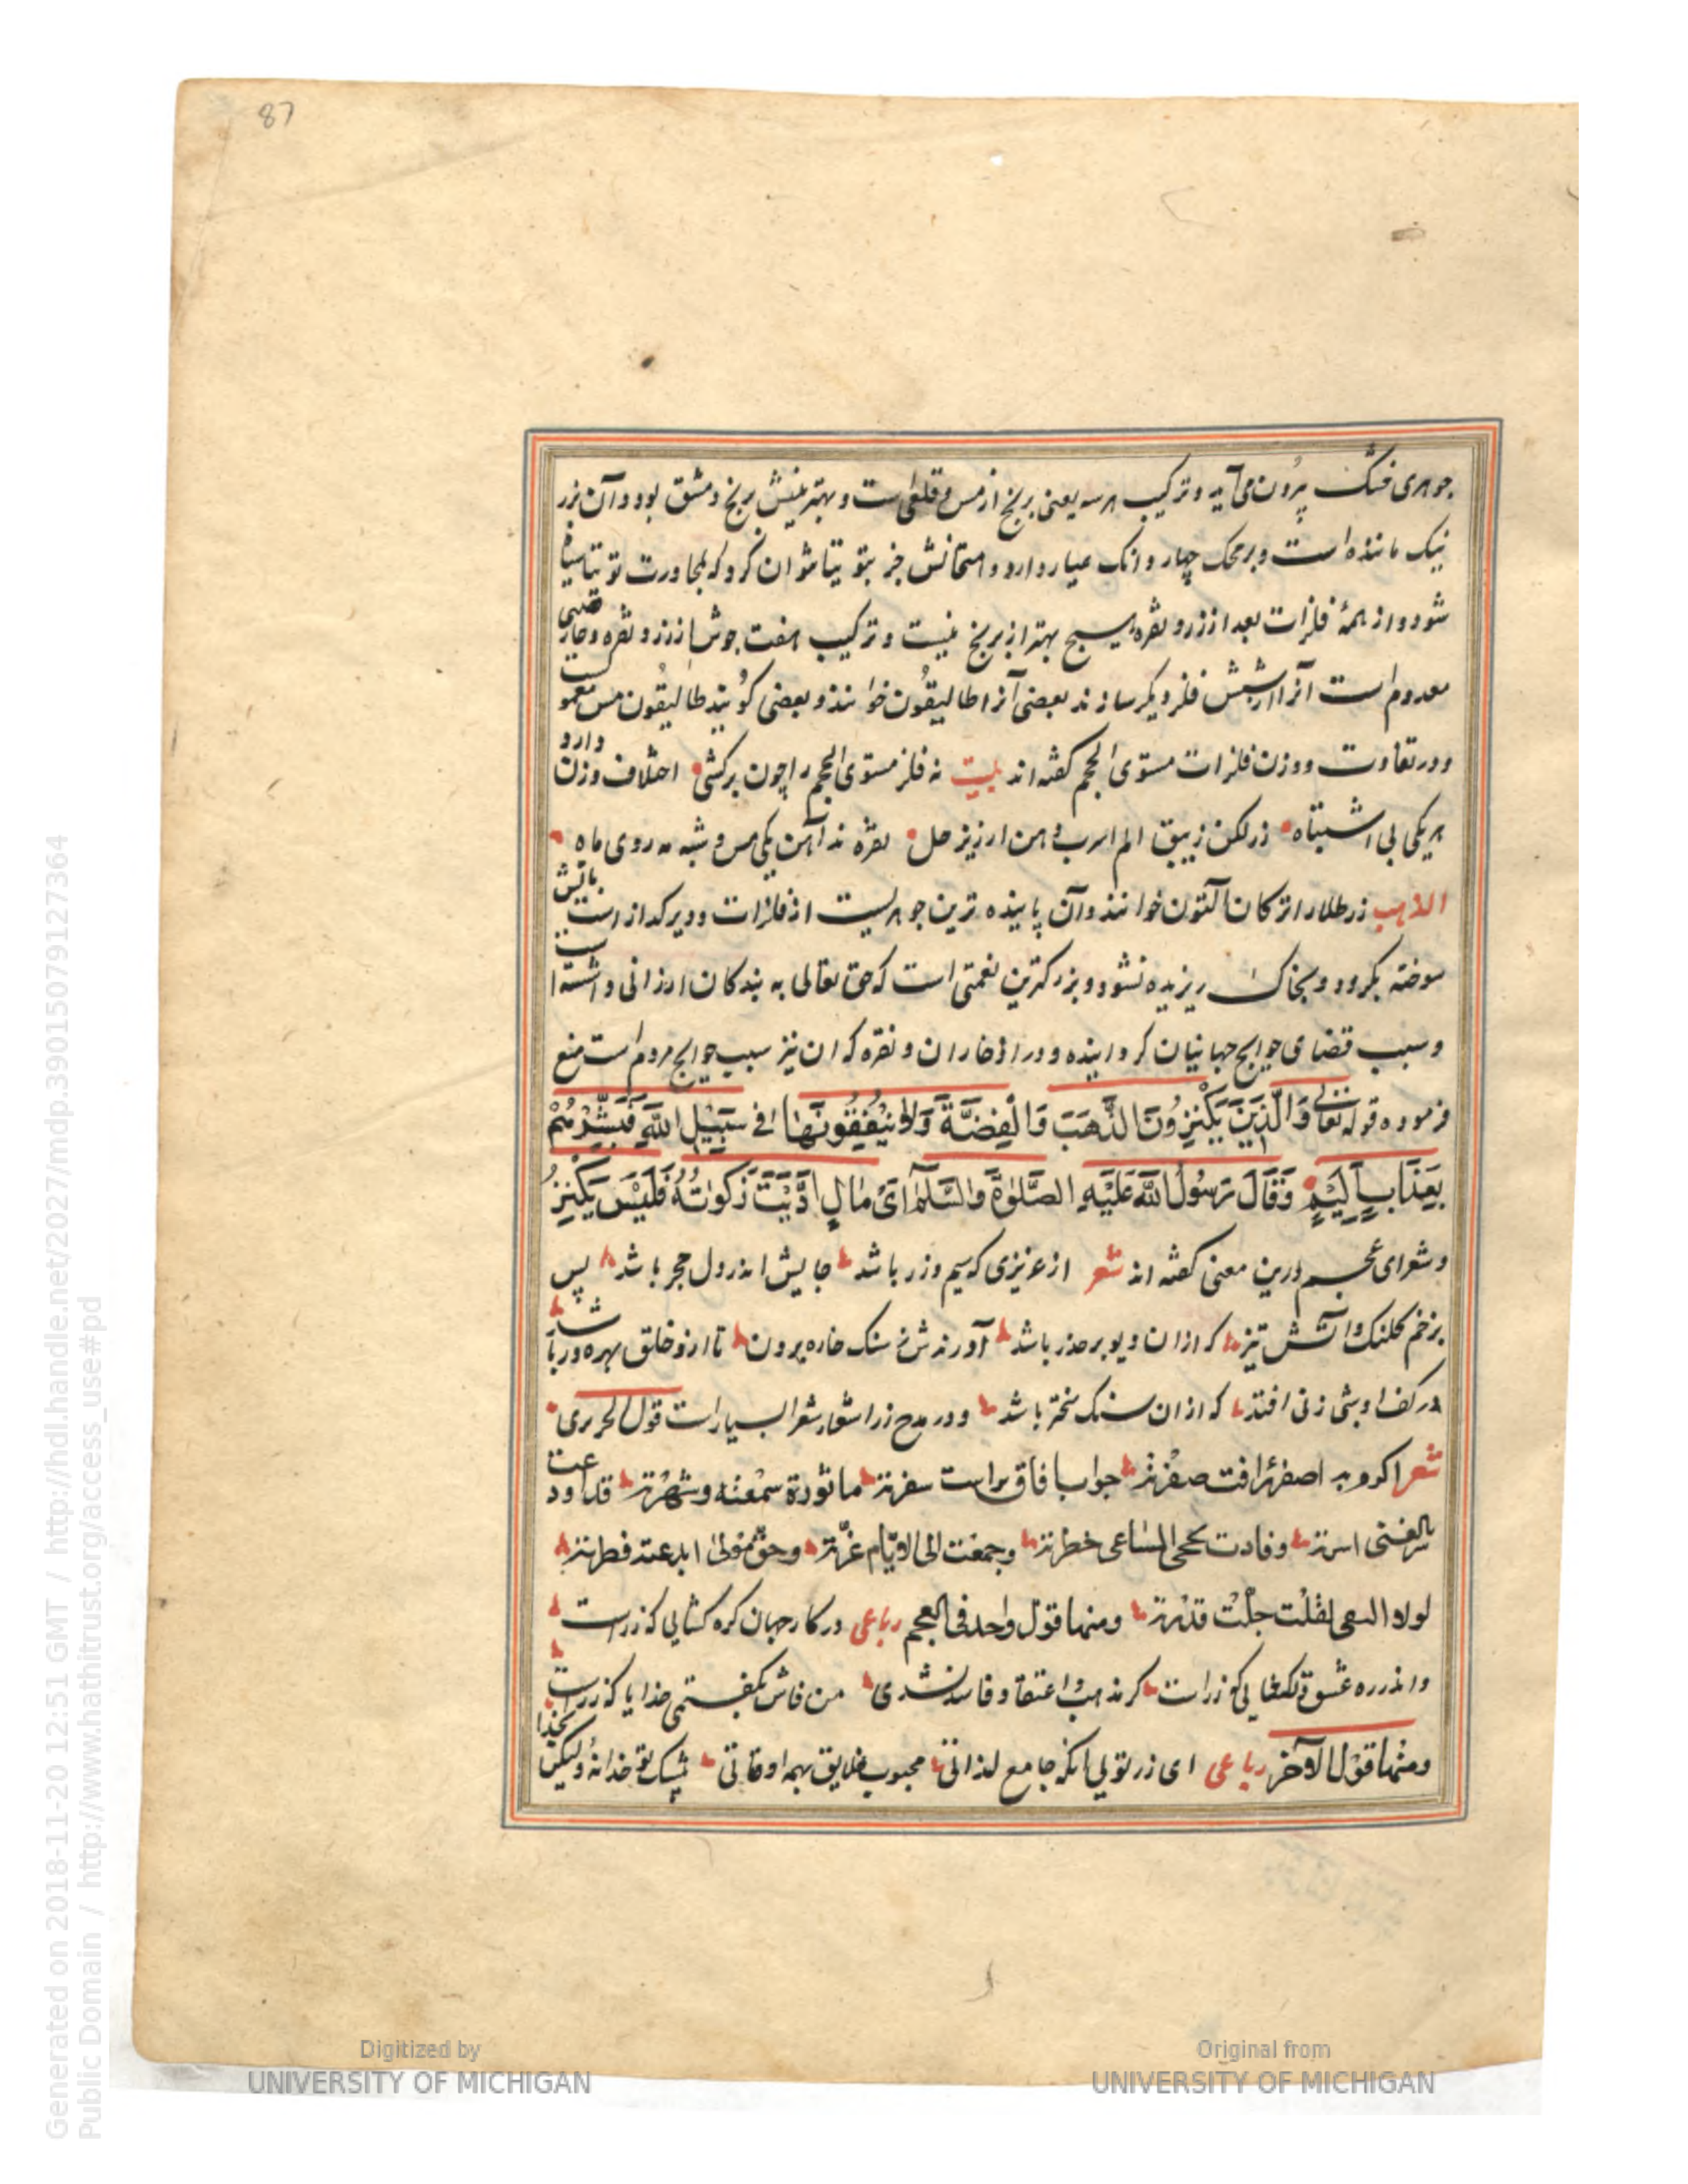 87
جوهری خشک بیرون می آید و ترکیب هرسه یعنی برنج از مس و قلعی است و بهترینش برنج دمشق بود و آن بزر
نیک ماننده است و بر محک چهار دانک عیار دارد و امتحانش جز بتوتیا نتوان کرد که بمجاورت توتیا سیاه
شود و از همهٔ فلزات بعد از زر و نقره هیچ بهتر از برنج نیست و ترکیب هفت جوش از زر و نقره و خارصینی
معدوم است آنرا از شش فلز دیگر سازند بعضی آنرا طالیقون خوانند و بعضی گویند طالیقون مس معمولست
و در تفاوت وزن فلزات مستوی الحجم گفته اند بیت نه فلز مستوی الحجم را چون برکشی اختلاف وزن دارد
هر یکی بی اشتباه زر لکن زیبق الم اسرب دهن ارزیز حل نقره ند آهن یکی مس و شبه مه روی ماه
الذهب زر طلا را ترکان آلتون خوانند و آن پاینده ترین جوهریست از فلزات و دیر گداز است بآتش
سوخته نگردد و بخاک ریزیده نشود و بزرگترین نعمتی است که حق تعالی به بندگان ارزانی داشته است
و سبب قضای حوایج جهانیان گردانیده و در ادخار آن و نقره که آن نیز سبب حوایج مردم است منع
فرموده قوله تعالی وَالَّذِينَ يَكْنِزُونَ الذَّهَبَ وَالْفِضَّةَ وَلَا يُنْفِقُونَهَا فِي سَبِيلِ اللَّهِ فَبَشِّرْهُمْ
بِعَذَابٍ أَلِيمٍ وَقَالَ رَسُولُ اللَّهِ عَلَيْهِ الصَّلوٰةُ وَالسَّلَامُ اَیُّ مَالٍ اَدَّيْتَ زَكوٰتُهُ فَلَيْسَ بِكَنْزٍ
و شعرای عجم درین معنی گفته اند شعر از عزیزی که سیم و زر باشد جایش اندر دل حجر باشد پس
بزخم کلنک و آتش تیز که از آن دیو بر حذر باشد آورندش ز سنک خاره برون تا ازو خلق بهره ور باشد
در کف او بشی زنی افتد که از آن سنک سختر باشد و در مدح زر اشعار شعرا بسیار است قول الحریری
شعر اکرم به اصفر راقت صفرته جواب آفاق ترامت سفرته ماثورة سمعته و شهرته قد اودعت
سر الغنی اسرته وقارنت نجح المساعی خطرته وحببت الی الانام غرته وحق مولی ابدعته فطرته
لولا التقی لقلت جلت قدرته ومنها قول واحد فی العجم رباعی در کار جهان کره کشایی که زر است
و اندر ره عشق دلکشایی که زر است کر مذهب و اعتقاد فاسد نشدی من فاش بکفتمی خدایا که زر است
ومنها قول الآخر رباعی ای زر تویی آنکه جامع لذاتی محبوب خلایق بهمه اوقاتی بیشک تو خدا نهٔ ولیکن بخدا
Generated on 2018-11-20 12:51 GMT / http://hdl.handle.net/2027/mdp.39015079127364
Public Domain / http://www.hathitrust.org/access_use#pd
Digitized by
UNIVERSITY OF MICHIGAN
Original from
UNIVERSITY OF MICHIGAN